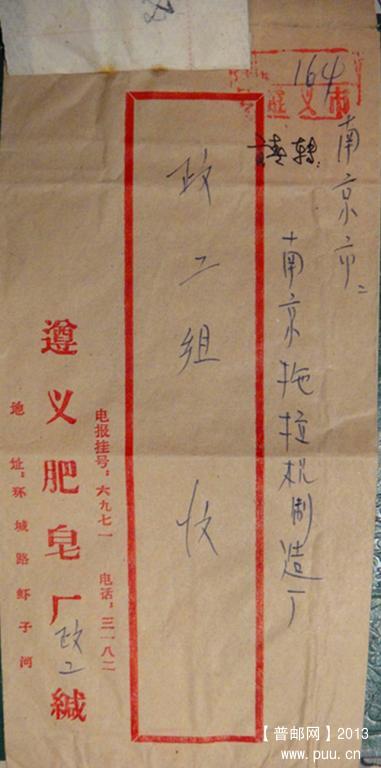 164
遵义市
南京市：
請转：
南京拖拉机制造厂
政工组 收
电报挂号：六九七一 电话：三一八二
遵义肥皂厂政工缄
地址：环城路虾子河
【普邮网】2013
www.puu.cn